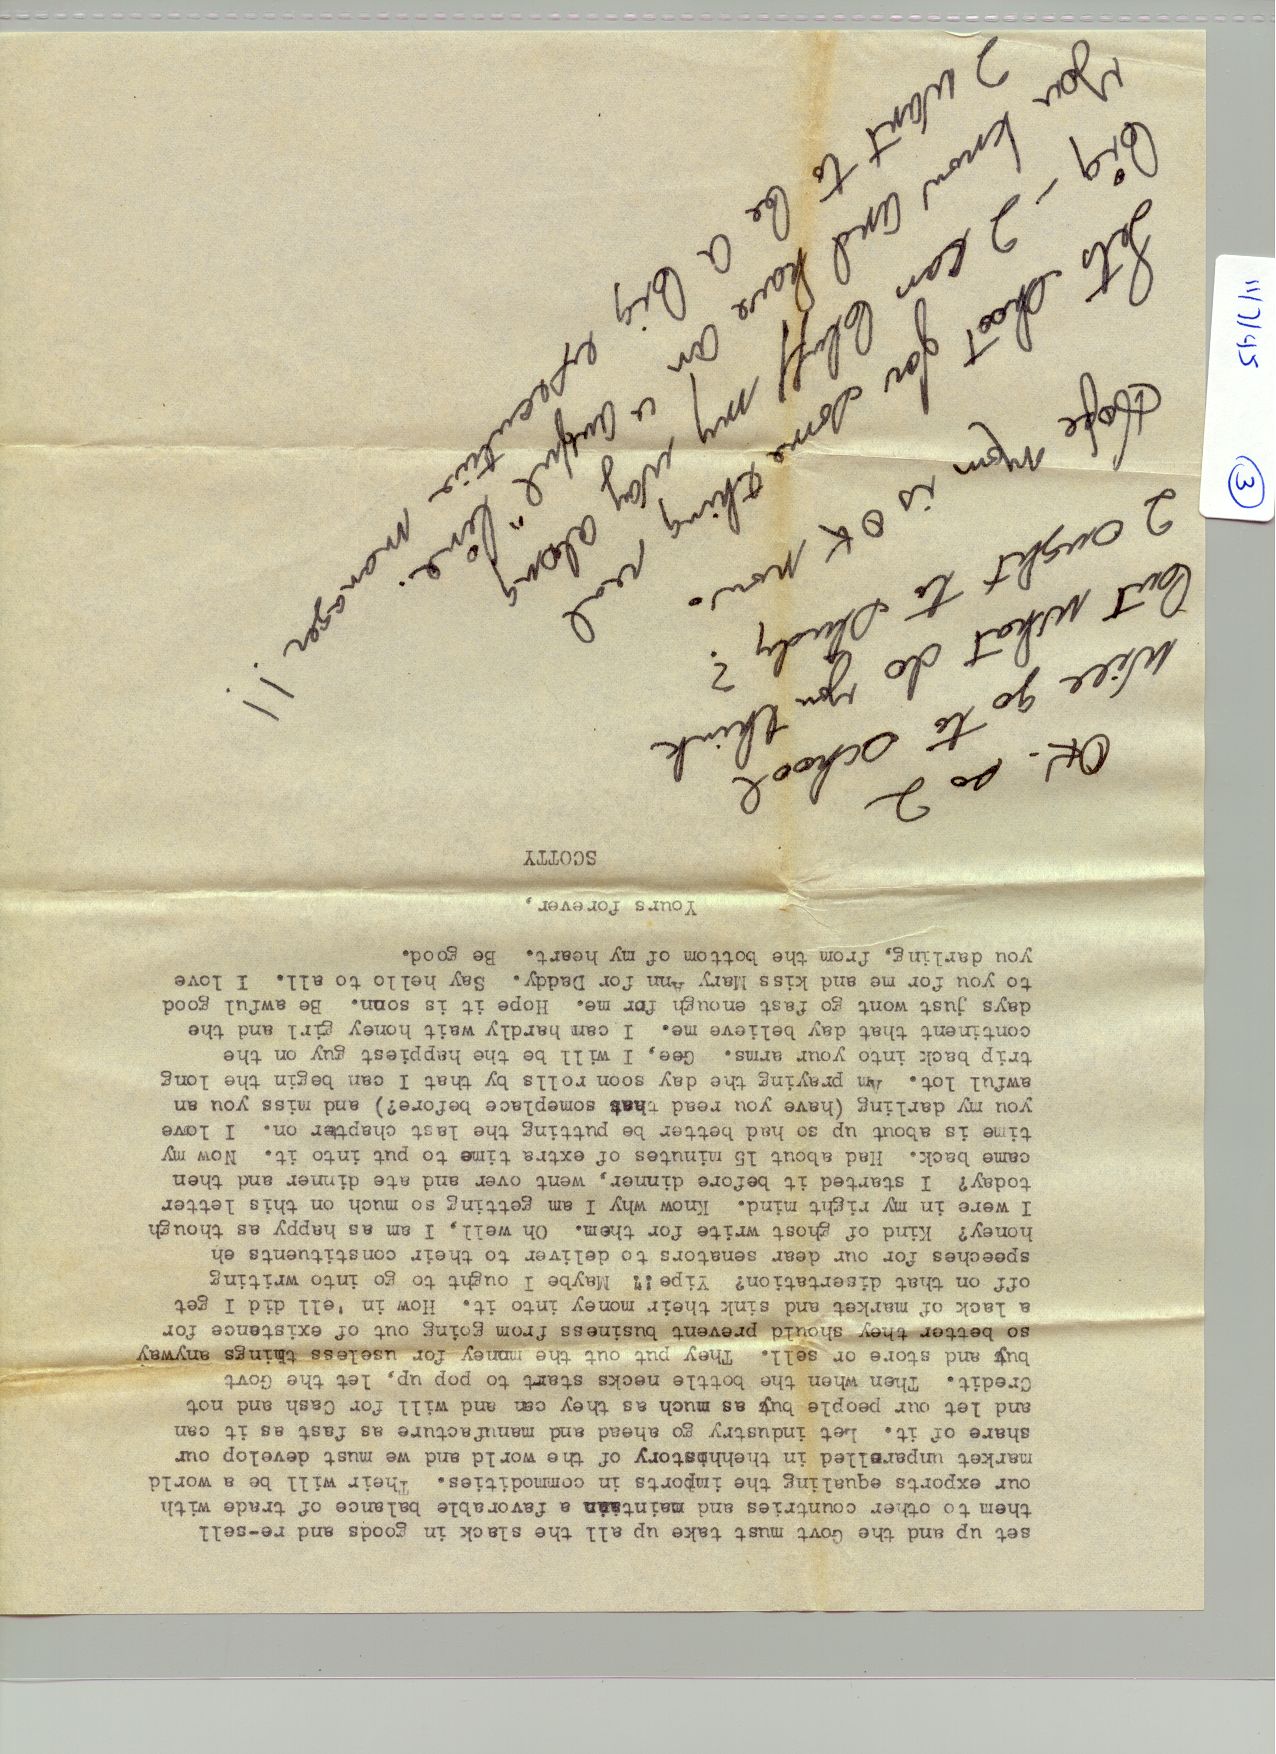 set up and the Govt must take up all the slack in goods and re-sell
them to other countries and maintain a favorable balance of trade with
our exports equaling the imports in commodities. Their will be a world
market unparelled in thehhistory of the world and we must develop our
share of it. Let industry go ahead and manufacture as fast as it can
and let our people buy as much as they can and will for Cash and not
Credit. Then when the bottle necks start to pop up, let the Govt
buy and store or sell. They put out the money for useless things anyway
so better they should prevent business from going out of existance for
a lack of market and sink their money into it. How in 'ell did I get
off on that disertation? Yipe!? Maybe I ought to go into writing
speeches for our dear senators to deliver to their constituents eh
honey? Kind of ghost write for them. Oh well, I am as happy as though
I were in my right mind. Know why I am getting so much on this letter
today? I started it before dinner, went over and ate dinner and then
came back. Had about 15 minutes of extra time to put into it. Now my
time is about up so had better be putting the last chapter on. I love
you my darling (have you read that someplace before?) and miss you an
awful lot. Am praying the day soon rolls by that I can begin the long
trip back into your arms. Gee, I will be the happiest guy on the
continent that day believe me. I cam hardly wait honey girl and the
days just wont go fast enough for me. Hope it is soon. Be awful good
to you for me and kiss Mary Ann for Daddy. Say hello to all. I love
you darling, from the bottom of my heart. Be good.
Yours forever,
SCOTTY
OK. so I
will go to school
but what do you think
I ought to study?
Hope Mom is OK now.
Lets shoot for some thing real
big - I can bluff my way along
you know and have an awful "line.
I want to be a big executive manager!!
11/7/45
3